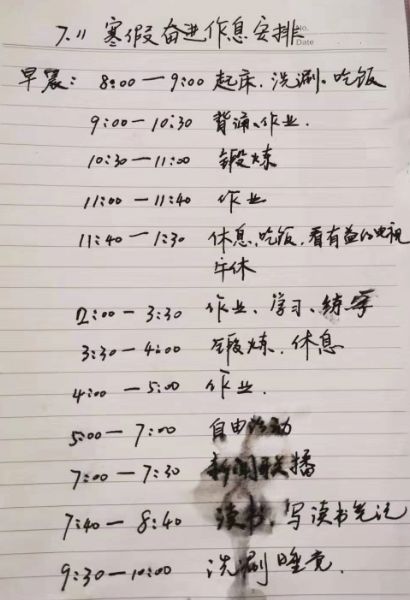 7.11 寒假奋进作息安排
No.
Date
早晨: 8:00—9:00 起床、洗涮、吃饭
9:00—10:30 背诵、作业.
10:30—11:00 锻炼
11:00—11:40 作业
11:40—1:30 休息、吃饭、看有益的电视
午休
2:00—3:30 作业、学习、练字
3:30—4:00 锻炼、休息
4:00—5:00 作业.
5:00—7:00 自由活动
7:00—7:30 新闻联播
7:40—8:40 读书、写读书笔记
9:30—10:00 洗涮睡觉.